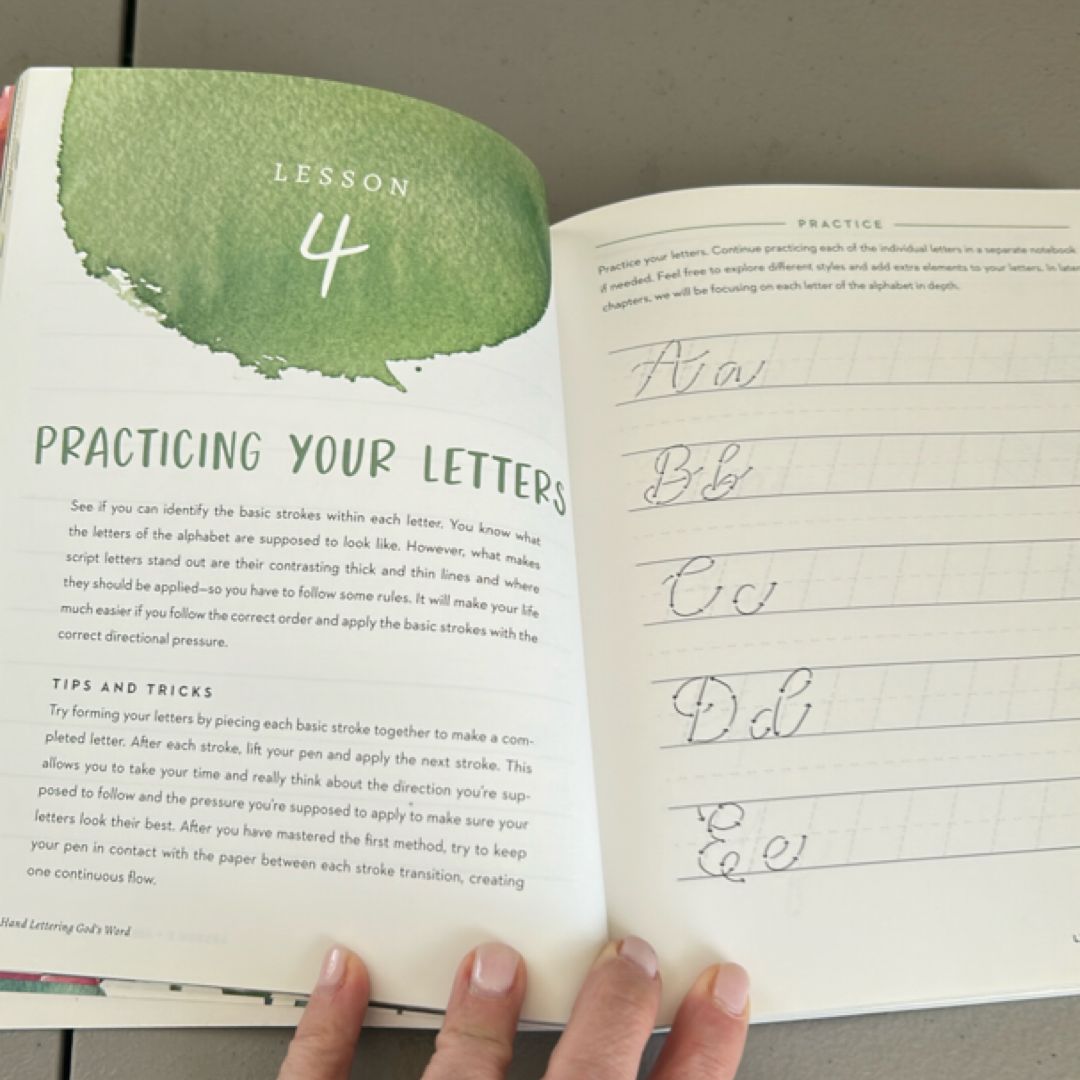 LESSON
4
PRACTICING YOUR LETTERS
See if you can identify the basic strokes within each letter. You know what
the letters of the alphabet are supposed to look like. However, what makes
script letters stand out are their contrasting thick and thin lines and where
they should be applied—so you have to follow some rules. It will make your life
much easier if you follow the correct order and apply the basic strokes with the
correct directional pressure.
TIPS AND TRICKS
Try forming your letters by piecing each basic stroke together to make a com-
pleted letter. After each stroke, lift your pen and apply the next stroke. This
allows you to take your time and really think about the direction you're sup-
posed to follow and the pressure you're supposed to apply to make sure your
letters look their best. After you have mastered the first method, try to keep
your pen in contact with the paper between each stroke transition, creating
one continuous flow.
Hand Lettering God's Word
PRACTICE
Practice your letters. Continue practicing each of the individual letters in a separate notebook
if needed. Feel free to explore different styles and add extra elements to your letters. In later
chapters, we will be focusing on each letter of the alphabet in depth.
A a
B b
C c
D d
E e